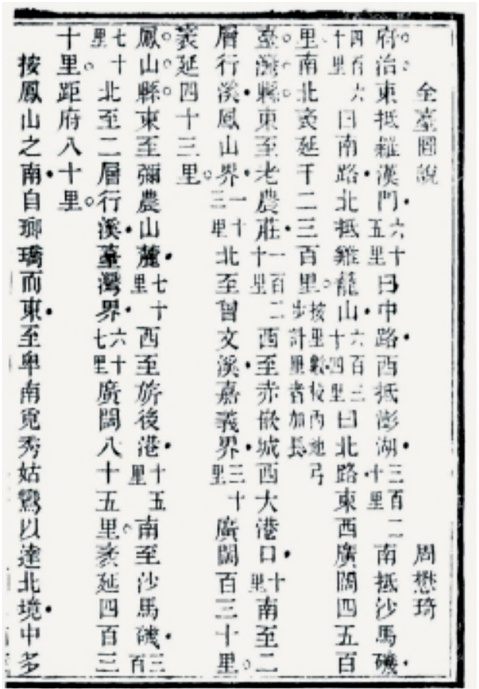 全臺圖說 周懋琦
府治東抵羅漢門六十五里曰中路西抵澎湖三百二十里南抵沙馬磯
四百六十里曰南路北抵雞籠山六百三十四里曰北路東西廣闊四五百
里南北袤延千二三百里按里數校內地弓步計里者加長
臺灣縣東至老農莊一百二十里西至赤嵌城西大港口十里南至二
層行溪鳳山界一十三里北至曾文溪嘉義界三十里廣闊百三十里
袤延四十三里
鳳山縣東至彌農山麓七十里西至旂後港十五里南至沙馬磯三百
七十里北至二層行溪臺灣界六十七里廣闊八十五里袤延四百三
十里距府八十里
按鳳山之南自瑯𤩝而東至卑南覓秀姑鸞以達北境中多